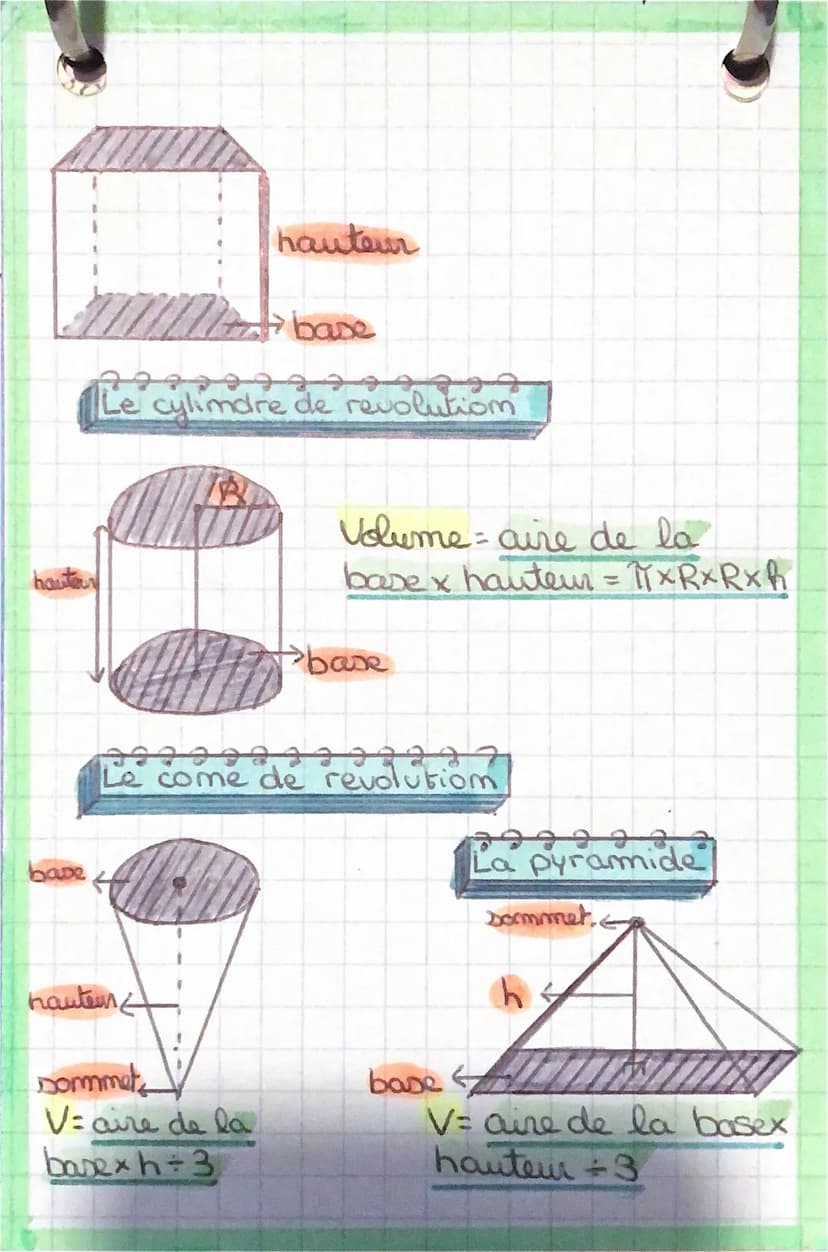 hauteur
base
Le cylindre de revolution
R
hauteur
Volume = aire de la
base x hauteur = π x R x R x h
base
Le cone de revolution
base
hauteur
sommet
V = aire de la
base x h ÷ 3
La pyramide
sommet
h
base
V = aire de la base x
hauteur ÷ 3